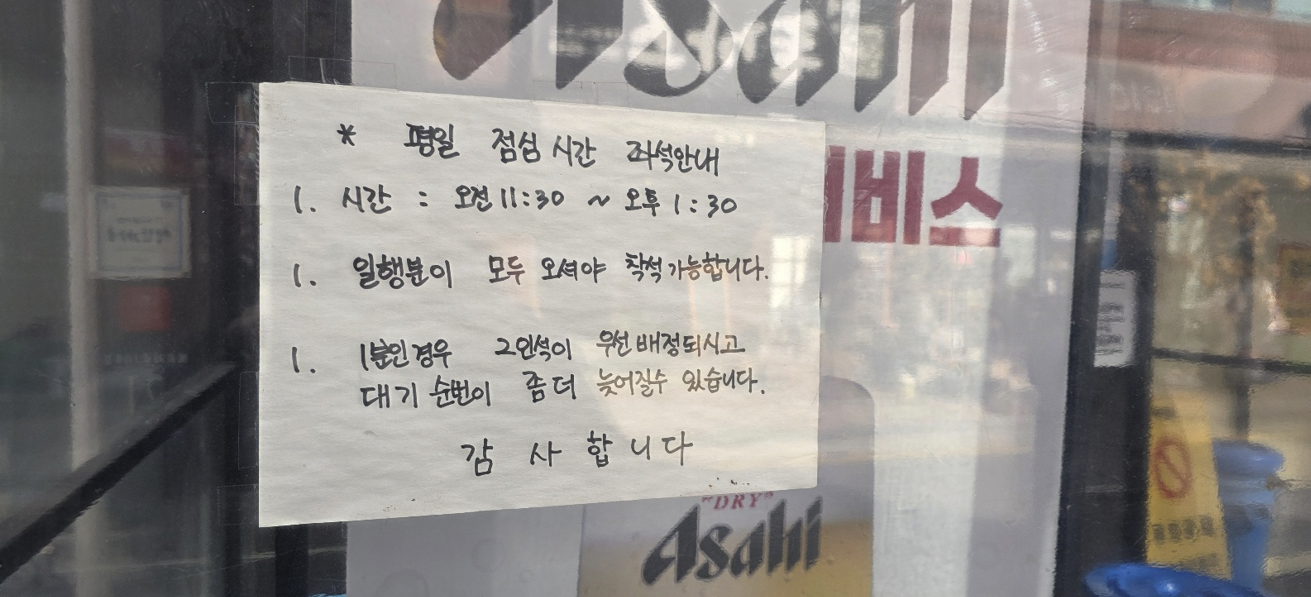 Asahi
비스
* 평일 점심 시간 좌석안내
1. 시간 : 오전 11:30 ~ 오후 1:30
1. 일행분이 모두 오셔야 착석 가능합니다.
1. 1분인 경우 2인석이 우선 배정되시고
대기 순번이 좀 더 늦어질수 있습니다.
감 사 합 니 다
"DRY"
Asahi